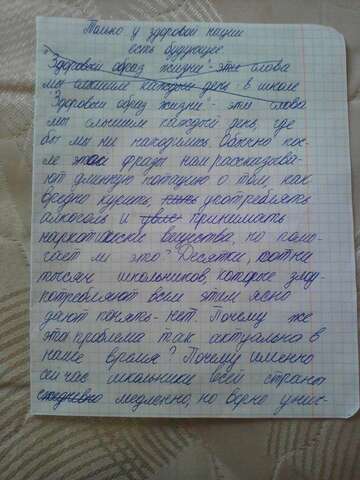 Только у здоровой нации
есть будущее
"Здоровый образ жизни"- эти слова
мы слышим каждый день в школе
"Здоровый образ жизни"- эти слова
мы слышим каждый день, где
бы мы ни находились. Обычно пос-
ле этой фразы нам рассказыва-
ют длинную нотацию о том, как
вредно курить, употреблять
алкоголь и принимать
наркотические вещества, но помо-
гает ли это? Десятки, сотни
тысяч школьников, которые злоу-
потребляют всем этим ясно
дают понять- нет. Почему же
эта проблема так актуальна в
наше время? Почему именно
сейчас школьники всей страны
ежедневно медленно, но верно унич-